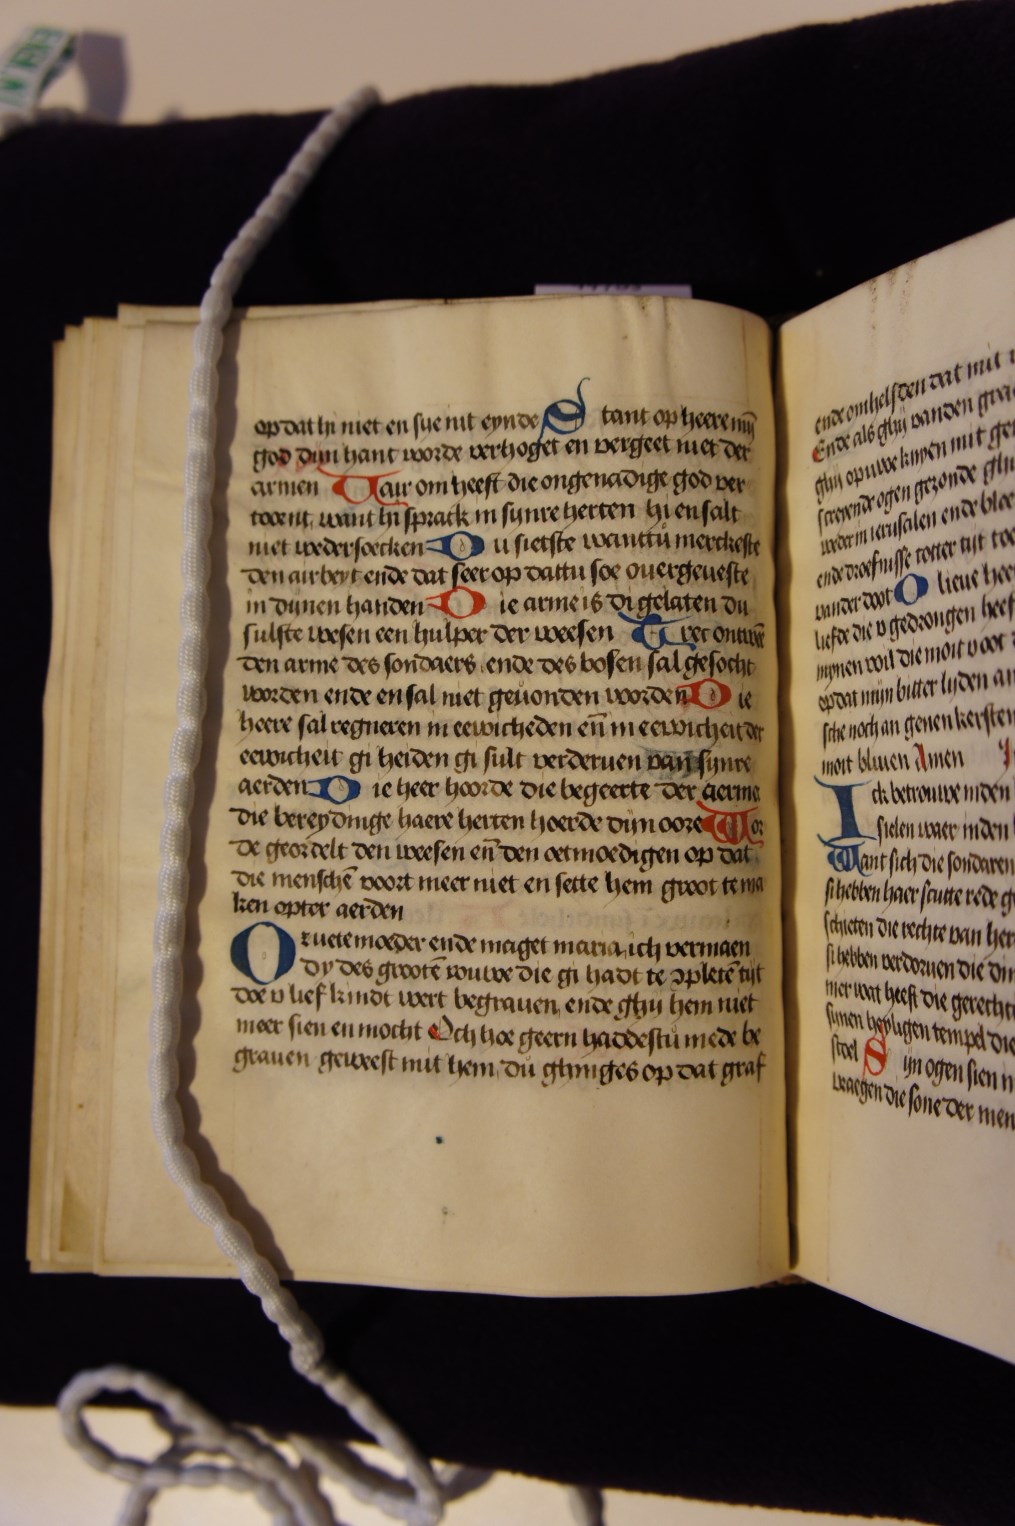 op dat hi niet en sye nit eynde Stant op heere mijn
god dijn hant worde verhoget en vergeet niet der
armen Wair om heeft die ongenadige god ver
toent want hi sprack in synre herten hi en salt
niet wedersoecken Du sietste wanttu merckeste
den airbeyt ende dat seer op dattu soe overgeveste
in dijnen handen Die arme is di gelaten du
sulste wesen een hulper der weesen
den arme des sondaers ende des bosen sal gesocht
worden ende en sal niet gevonden worden Die
heere sal regneren in eewicheden en̄ in eewicheit der
eewicheit gi heiden gi sult verderven van synre
aerden Die heer hoorde die begeerte der aerme
die bereydinge haere herten hoerde dijn oore Wor
de geordelt den weesen en̄ den oetmoedigen op dat
die menschē voort meer niet en sette hem groot te ma
ken opter aerden
O zuete moeder ende maget maria ich vermaen
dy des grootē rouwe die gi hadt te ɔpletē tijt
doe v lief kindt wert begraven ende ghij hem niet
meer sien en mocht Och hoe geern haddestu mede be
graven geweest mit hem du ghinges op dat graf
ende omhelsden dat mit
Ende als ghij vanden grav
ghij op uwe knyen mit ge
screyende ogen
weder in ierusalen ende bloe
ende droefnisse totter tijt toe
vander doot O lieve hee
liefde die v gedrongen heef
mynen wil die moit v oot
op dat mijn bitter lijden an
sche noch an genen kersten
moit bliven Amen
Ick betrouwe in den
sielen waer in den
Want sich die sondaren
si hebben haer scutte rede g
schieten die rechte van her
si hebben verdorven die din
mer wat heeft die gerecht
sinen heyligen tempel die
stoel Sijn ogen sien n
vraegen die sone der men